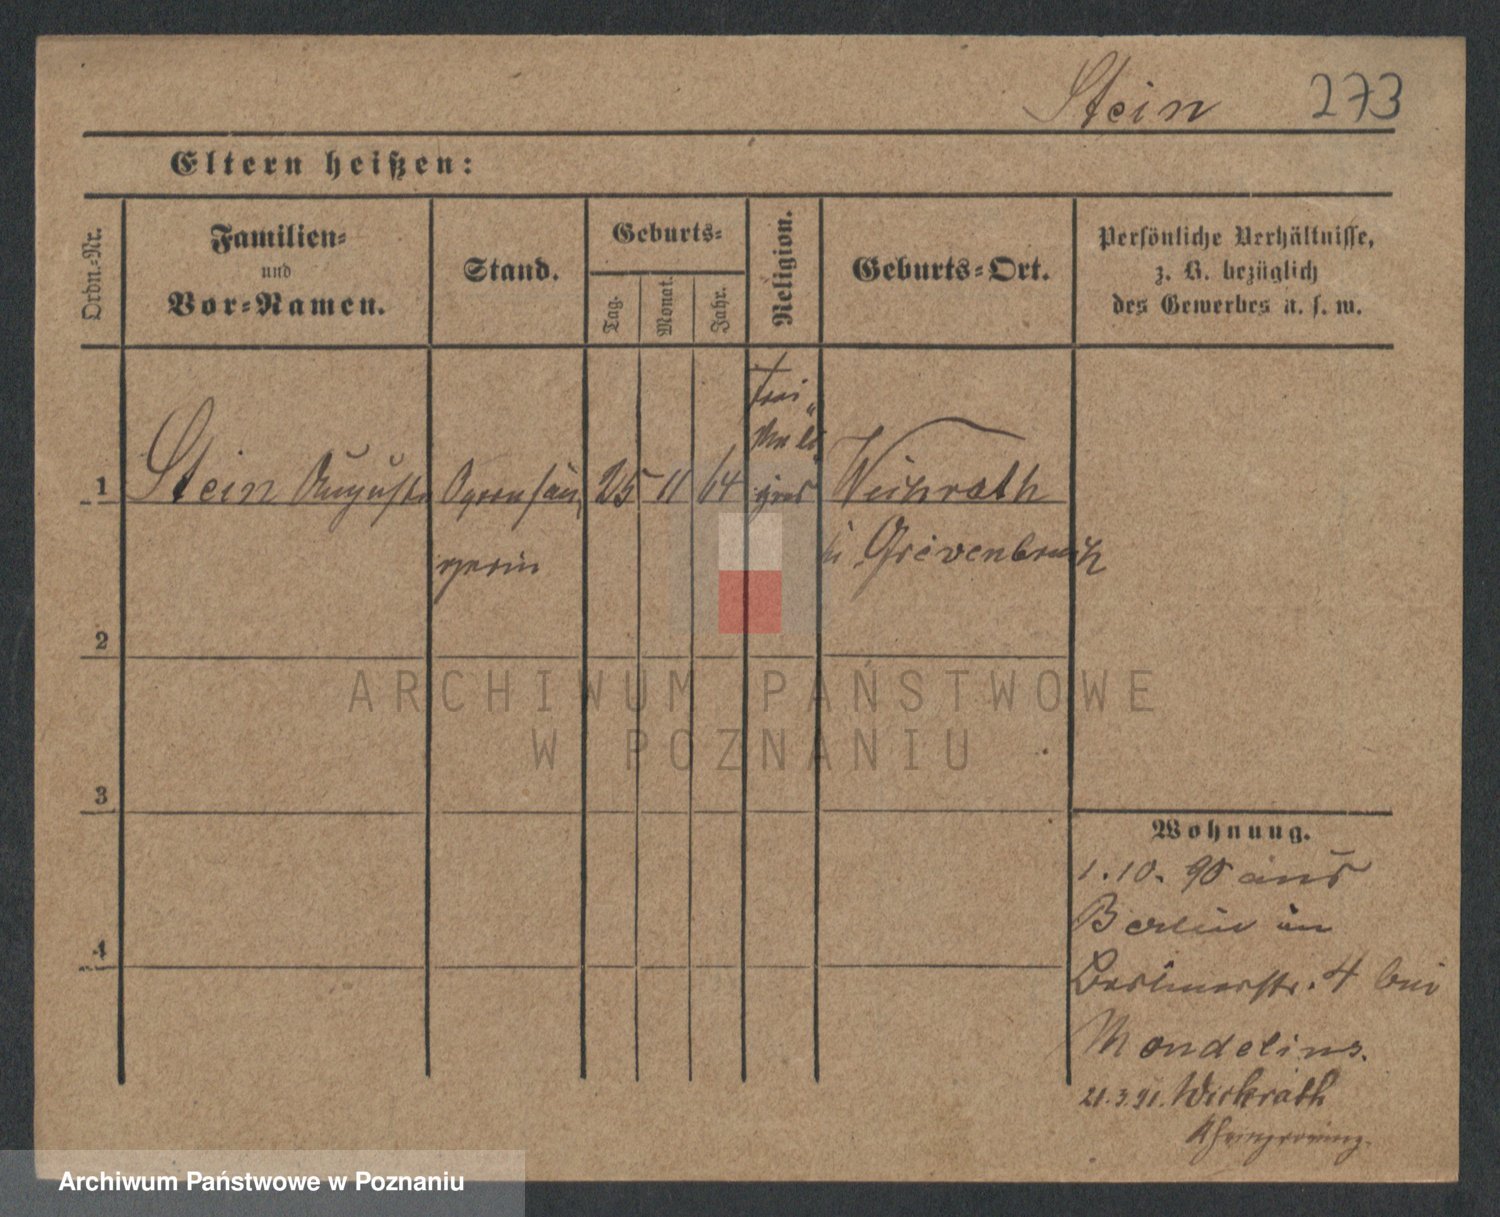 Stein 273
Eltern heißen:
Ordn.-Nr.
Familien-
und
Vor-Namen.
Stand.
Geburts-
Tag.
Monat.
Jahr.
Religion.
Geburts-Ort.
Persönliche Verhältnisse,
z. B. bezüglich
des Gewerbes u. s. w.
1 Stein Auguste Opernsän
gerin
25 11 64
frei
reli
giös
Wickrath
Grevenbroich
2
3
4
Wohnung.
1.10. 90 aus
Berlin in
Berlinerstr. 4 bei
Mondelius.
21.3.91. Wickrath
Rheinprovinz.
ARCHIWUM PAŃSTWOWE
W POZNANIU
Archiwum Państwowe w Poznaniu